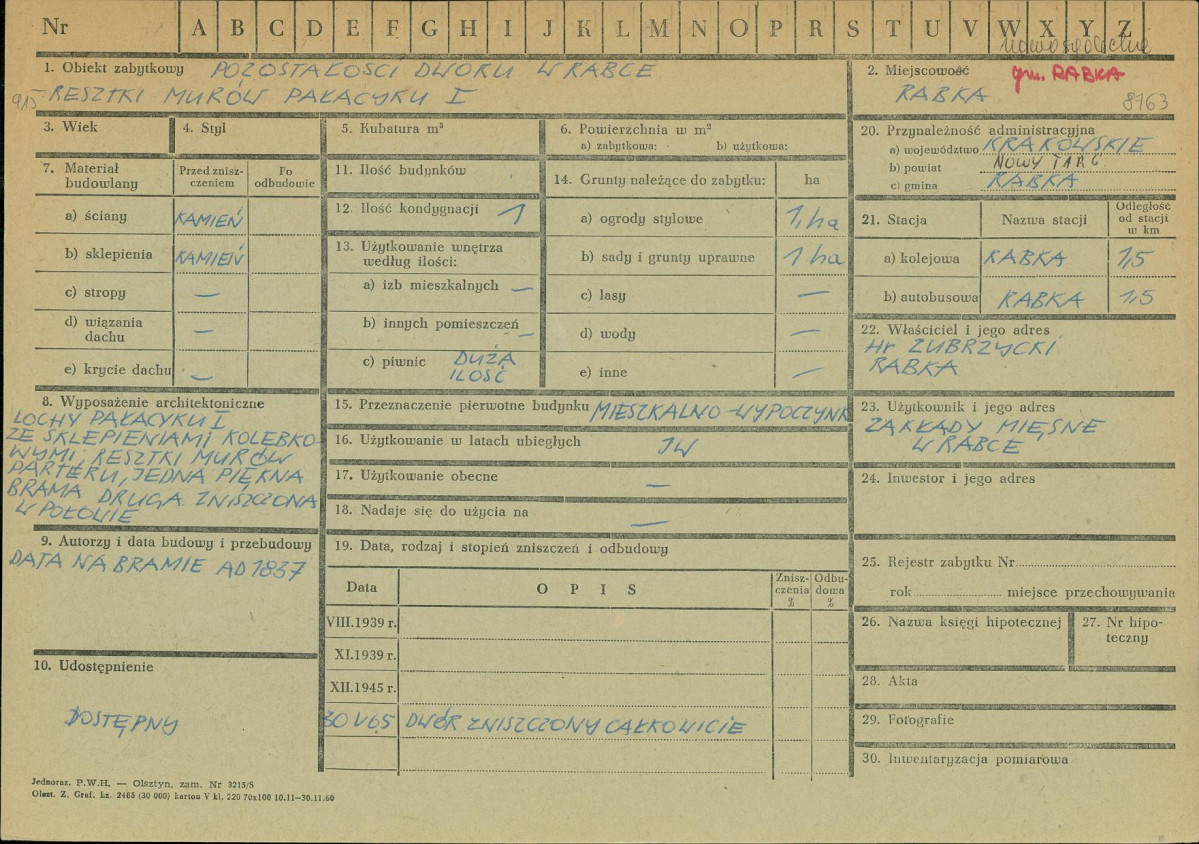 Nr A B C D E F G H I J K L M N O P R S T U V W X Y Z
nowosądeckie
1. Obiekt zabytkowy POZOSTAŁOŚCI DWORU W RABCE
915 RESZTKI MURÓW PAŁACYKU I
2. Miejscowość gm. RABKA
RABKA 8763
3. Wiek
4. Styl
5. Kubatura m³
6. Powierzchnia w m²
a) zabytkowa: b) użytkowa:
7. Materiał budowlany
Przed zniszczeniem
Po odbudowie
a) ściany KAMIEŃ
b) sklepienia KAMIEŃ
c) stropy —
d) wiązania dachu —
e) krycie dachu —
8. Wyposażenie architektoniczne
LOCHY PAŁACYKU I
ZE SKLEPIENIAMI KOLEBKO-
WYMI. RESZTKI MURÓW
PARTERU, JEDNA PIĘKNA
BRAMA DRUGA ZNISZCZONA
W POŁOWIE
9. Autorzy i data budowy i przebudowy
DATA NA BRAMIE AD 1837
10. Udostępnienie
DOSTĘPNY
11. Ilość budynków
12. Ilość kondygnacji 1
13. Użytkowanie wnętrza
według ilości:
a) izb mieszkalnych —
b) innych pomieszczeń —
c) piwnic DUŻA
ILOŚĆ
14. Grunty należące do zabytku: ha
a) ogrody stylowe 1, ha
b) sady i grunty uprawne 1 ha
c) lasy —
d) wody —
e) inne —
15. Przeznaczenie pierwotne budynku MIESZKALNO-WYPOCZYNK
16. Użytkowanie w latach ubiegłych JW
17. Użytkowanie obecne —
18. Nadaje się do użycia na —
19. Data, rodzaj i stopień zniszczeń i odbudowy
Data OPIS Zniszczenia % Odbudowa %
VIII.1939 r.
XI.1939 r.
XII.1945 r.
30 V 65 DWÓR ZNISZCZONY CAŁKOWICIE
20. Przynależność administracyjna
a) województwo KRAKOWSKIE
b) powiat NOWY TARG
c) gmina RABKA
21. Stacja Nazwa stacji Odległość od stacji w km
a) kolejowa RABKA 1,5
b) autobusowa RABKA 1,5
22. Właściciel i jego adres
Hr ZUBRZYCKI
RABKA
23. Użytkownik i jego adres
ZAKŁADY MIĘSNE
W RABCE
24. Inwestor i jego adres
25. Rejestr zabytku Nr
rok miejsce przechowywania
26. Nazwa księgi hipotecznej
27. Nr hipoteczny
28. Akta
29. Fotografie
30. Inwentaryzacja pomiarowa
Jednoraz. P.W.H. — Olsztyn, zam. Nr 3215/S
Olszt. Z. Graf. Lz. 2485 (30 000) karton V kl. 220 70x100 10.11—30.11.60